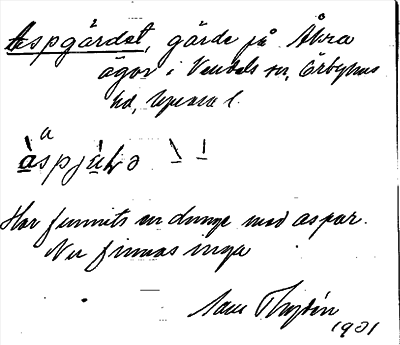 Aspgärdet, gärde på Åbra
ägor i Vendels sn, Örbyhus
hd, Uppsala l.
a
Har funnits en dunge med aspar.
Nu finnas inga
1931